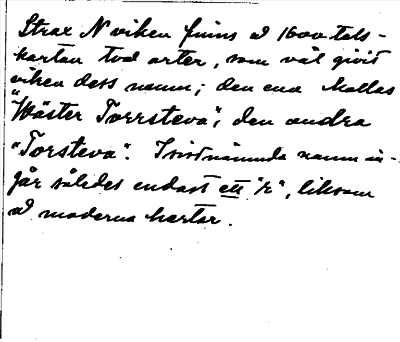 Strax N viken finns å 1600-tals-
kartan två orter, som väl givit
viken dess namn; den ena kallas
"Wäster Torrsteva", den andra
"Torsteva". I sistnämnda namn in-
går således endast ett "r", liksom
å moderna kartor.